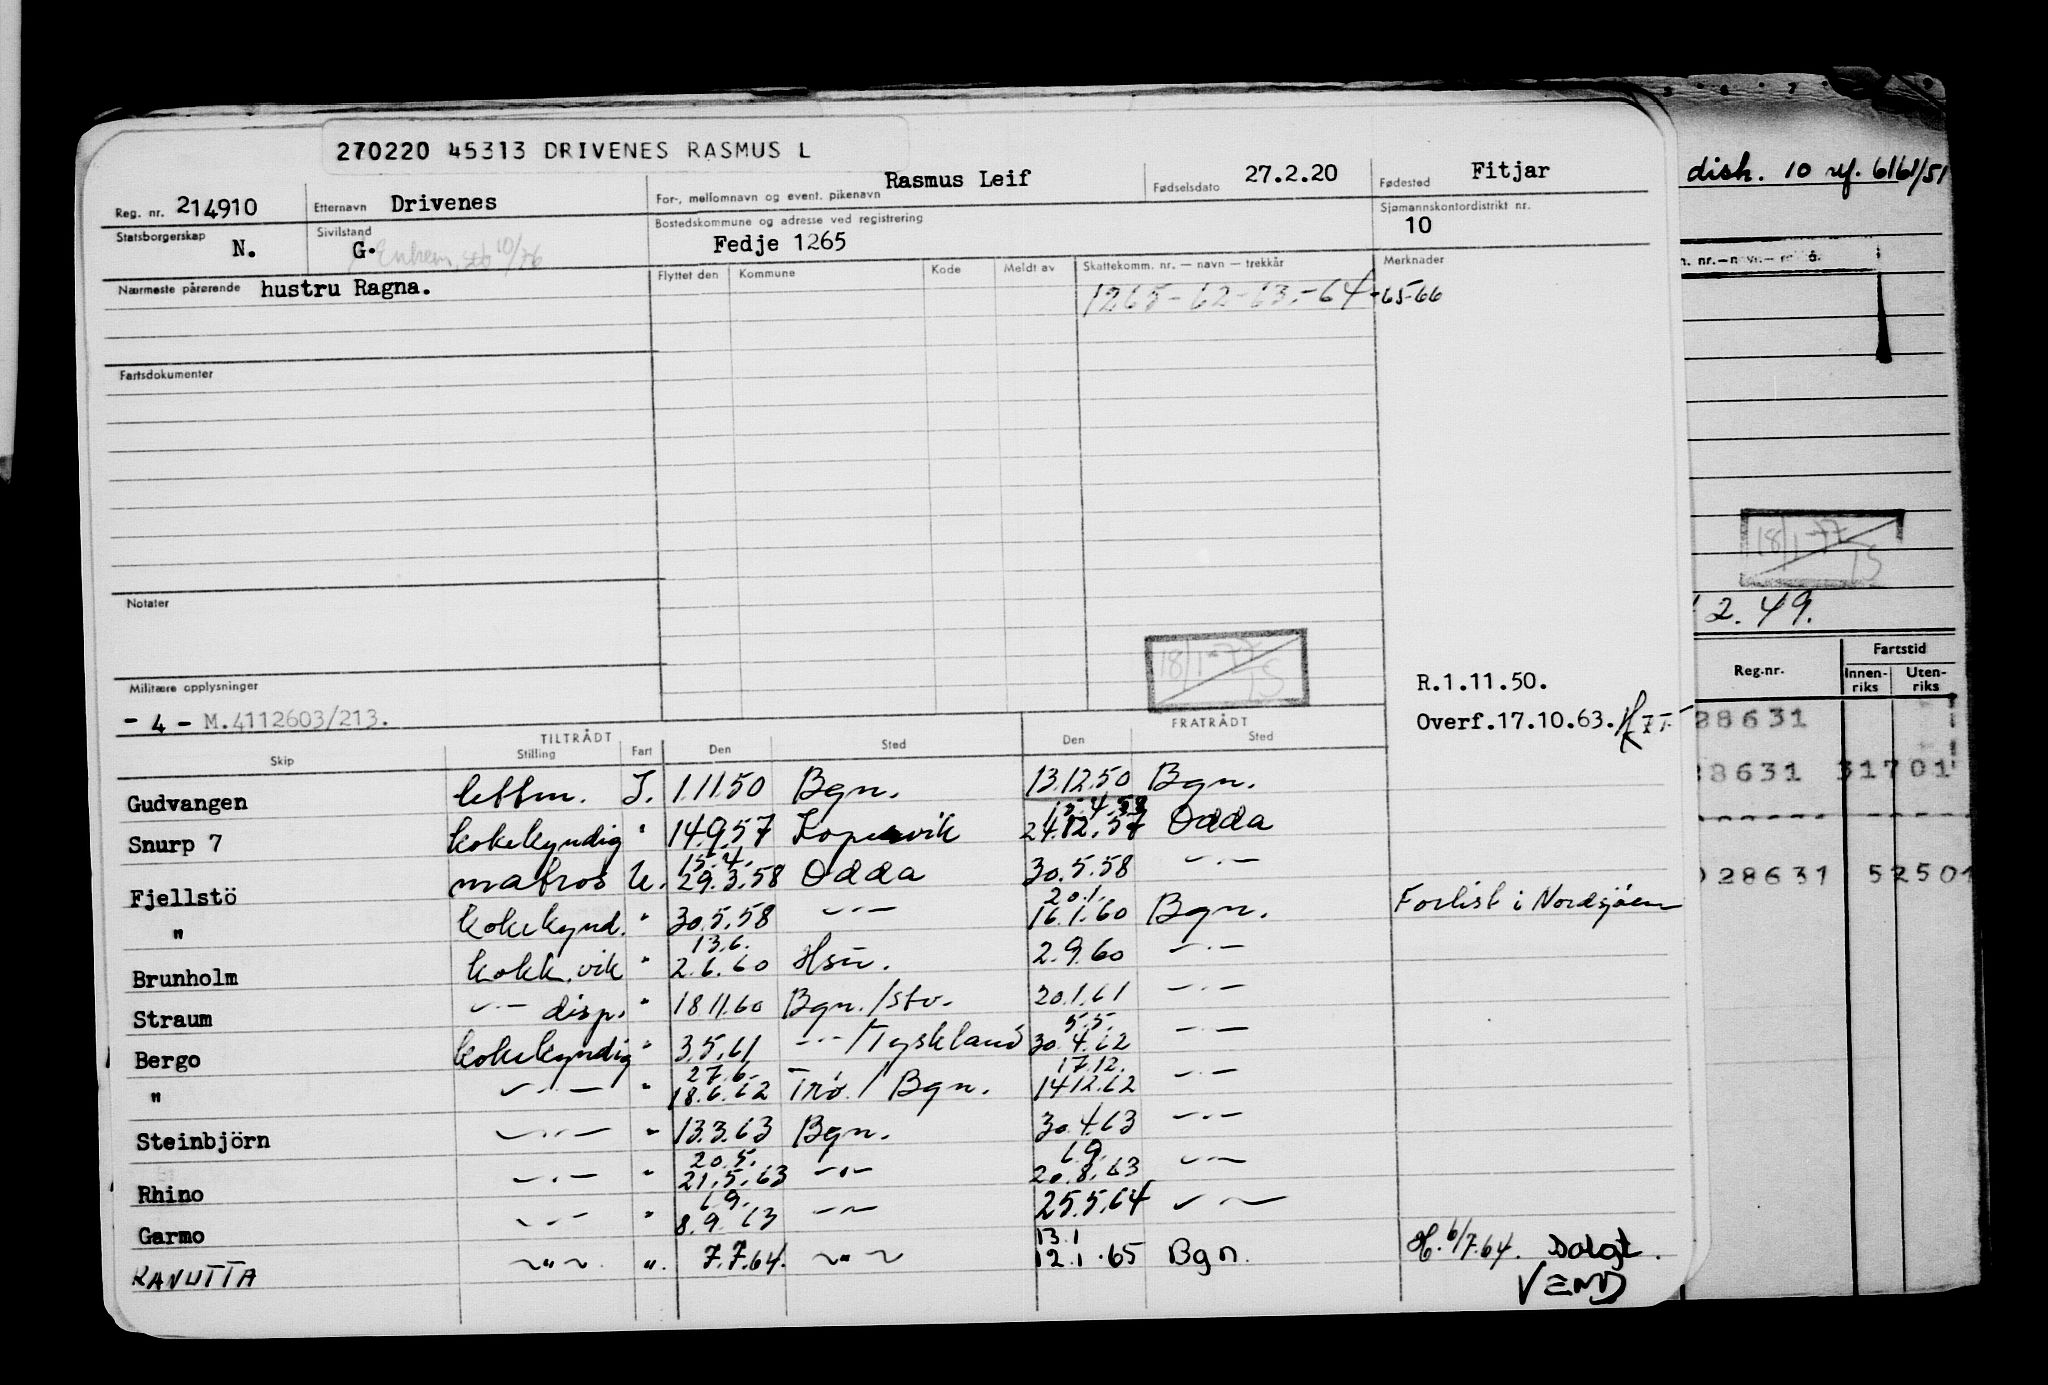 270220 45313 DRIVENES RASMUS L
Reg. nr. 214910 Etternavn Drivenes For-, mellomnavn og event. pikenavn Rasmus Leif Fødselsdato 27.2.20 Fødested Fitjar
Statsborgerskap N. Sivilstand G. Enkem. 10/76 Bostedskommune og adresse ved registrering Fedje 1265 Sjømannskontordistrikt nr. 10
Nærmeste pårørende hustru Ragna. Flyttet den Kommune Kode Meldt av Skattekomm. nr. — navn — trekkår Merknader
1265-62-63-64-65-66
Fartsdokumenter
Notater
18/1-77
Militære opplysninger
R.1.11.50.
- 4 - M.4112603/213.
Overf.17.10.63.
TILTRÅDT FRATRÅDT
Skip Stilling Fart Den Sted Den Sted
Gudvangen lettm. I. 1.11.50 Bgn. 13.12.50 Bgn.
15.4.58
Snurp 7 kokekyndig " 14.9.57 Kopervik 24.12.57 Odda
15.4.
Fjellstö matros U. 29.3.58 Odda 30.5.58 —"—
20.1.
" kokekynd. " 30.5.58 —"— 16.1.60 Bgn. Forlist i Nordsjøen
13.6.
Brunholm kokk.vik " 2.6.60 Hsu. 2.9.60 —"—
Straum —"— disp. " 18.11.60 Bgn./Stv. 20.1.61 —"—
5.5.
Bergo kokekyndig " 3.5.61 —"—/Tyskland 30.4.62 —"—
27.6. 17.12.
" —"— " 18.6.62 Trø./Bgn. 14.12.62 —"—
Steinbjörn —"— " 13.3.63 Bgn. 30.4.63 —"—
20.5. 6.9.
Rhino —"— " 21.5.63 —"— 20.8.63 —"—
6.9.
Garmo —"— " 8.9.63 —"— 25.5.64 —"—
13.1
RANUTTA —"— " 7.7.64. —"— 12.1.65 Bgn. H. 6/7.64. Dolgt.
VEND
disk. 10 ref. 6161/51
18/1-77
2.49.
Reg.nr. Fartstid
Innen-riks Uten-riks
28631
28631 31701
28631 52501